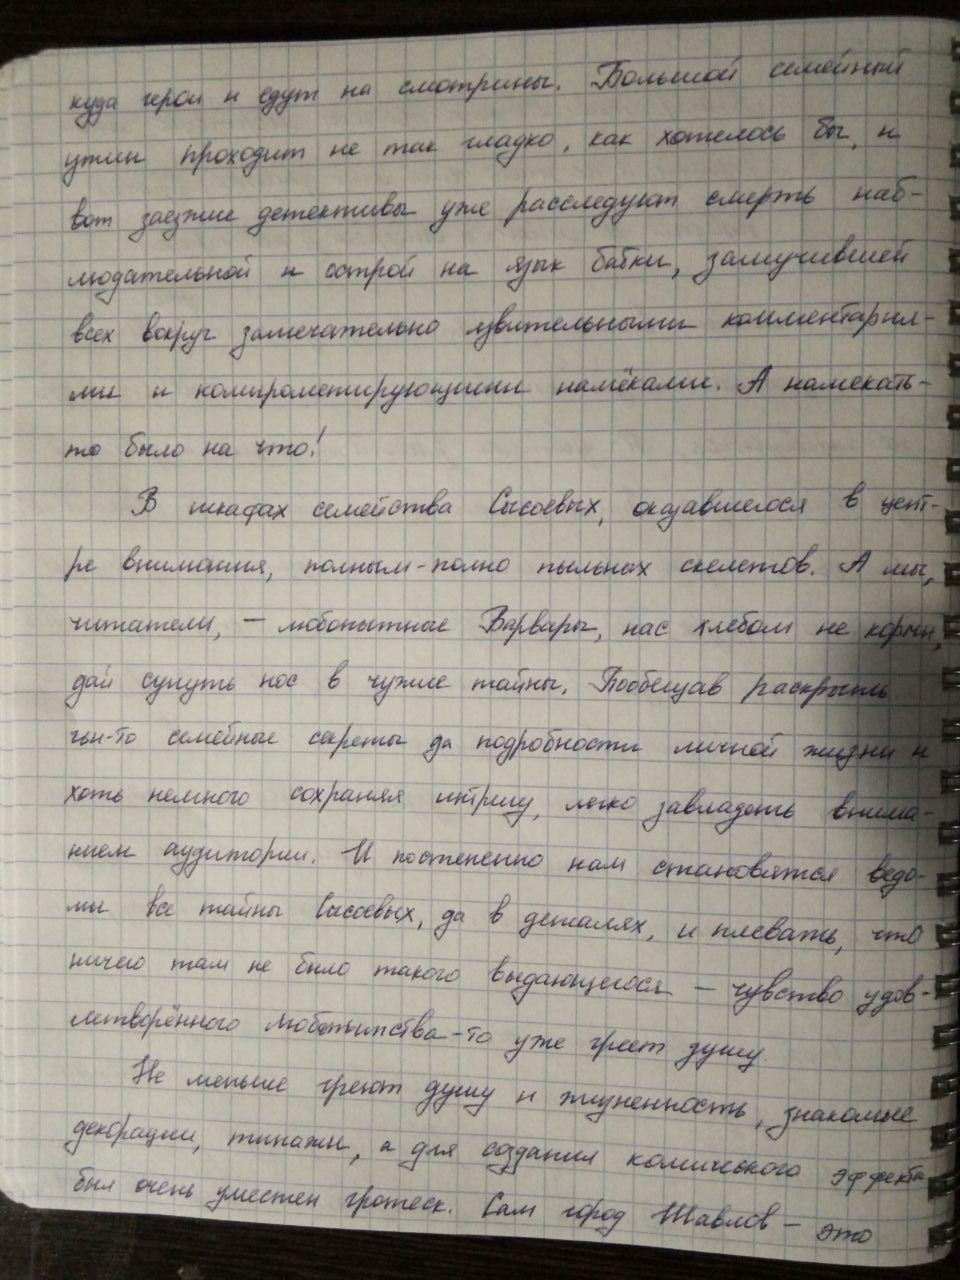 куда герои и едут на смотрины. Большой семейный
ужин проходит не так гладко, как хотелось бы, и
вот заезжие детективы уже расследуют смерть наб-
людательной и острой на язык бабки, замучившей
всех вокруг замечательно язвительными комментария-
ми и компрометирующими намёками. А намекать-
то было на что!
В шкафах семейства Сысоевых, оказавшегося в цент-
ре внимания, полным-полно пыльных скелетов. А мы,
читатели, – любопытные Варвары, нас хлебом не корми,
дай сунуть нос в чужие тайны. Пообещав раскрыть
чьи-то семейные секреты да подробности личной жизни и
хоть немного сохраняя интригу, легко завладеть внима-
нием аудитории. И постепенно нам становятся ведо-
мы все тайны Сысоевых, да в деталях, и плевать, что
ничего там не было такого выдающегося – чувство удов-
летворённого любопытства-то уже греет душу.
Не меньше греют душу и жизненность, знакомые
декорации, типажи, а для создания комического эффекта
был очень уместен гротеск. Сам город Шавлов – это